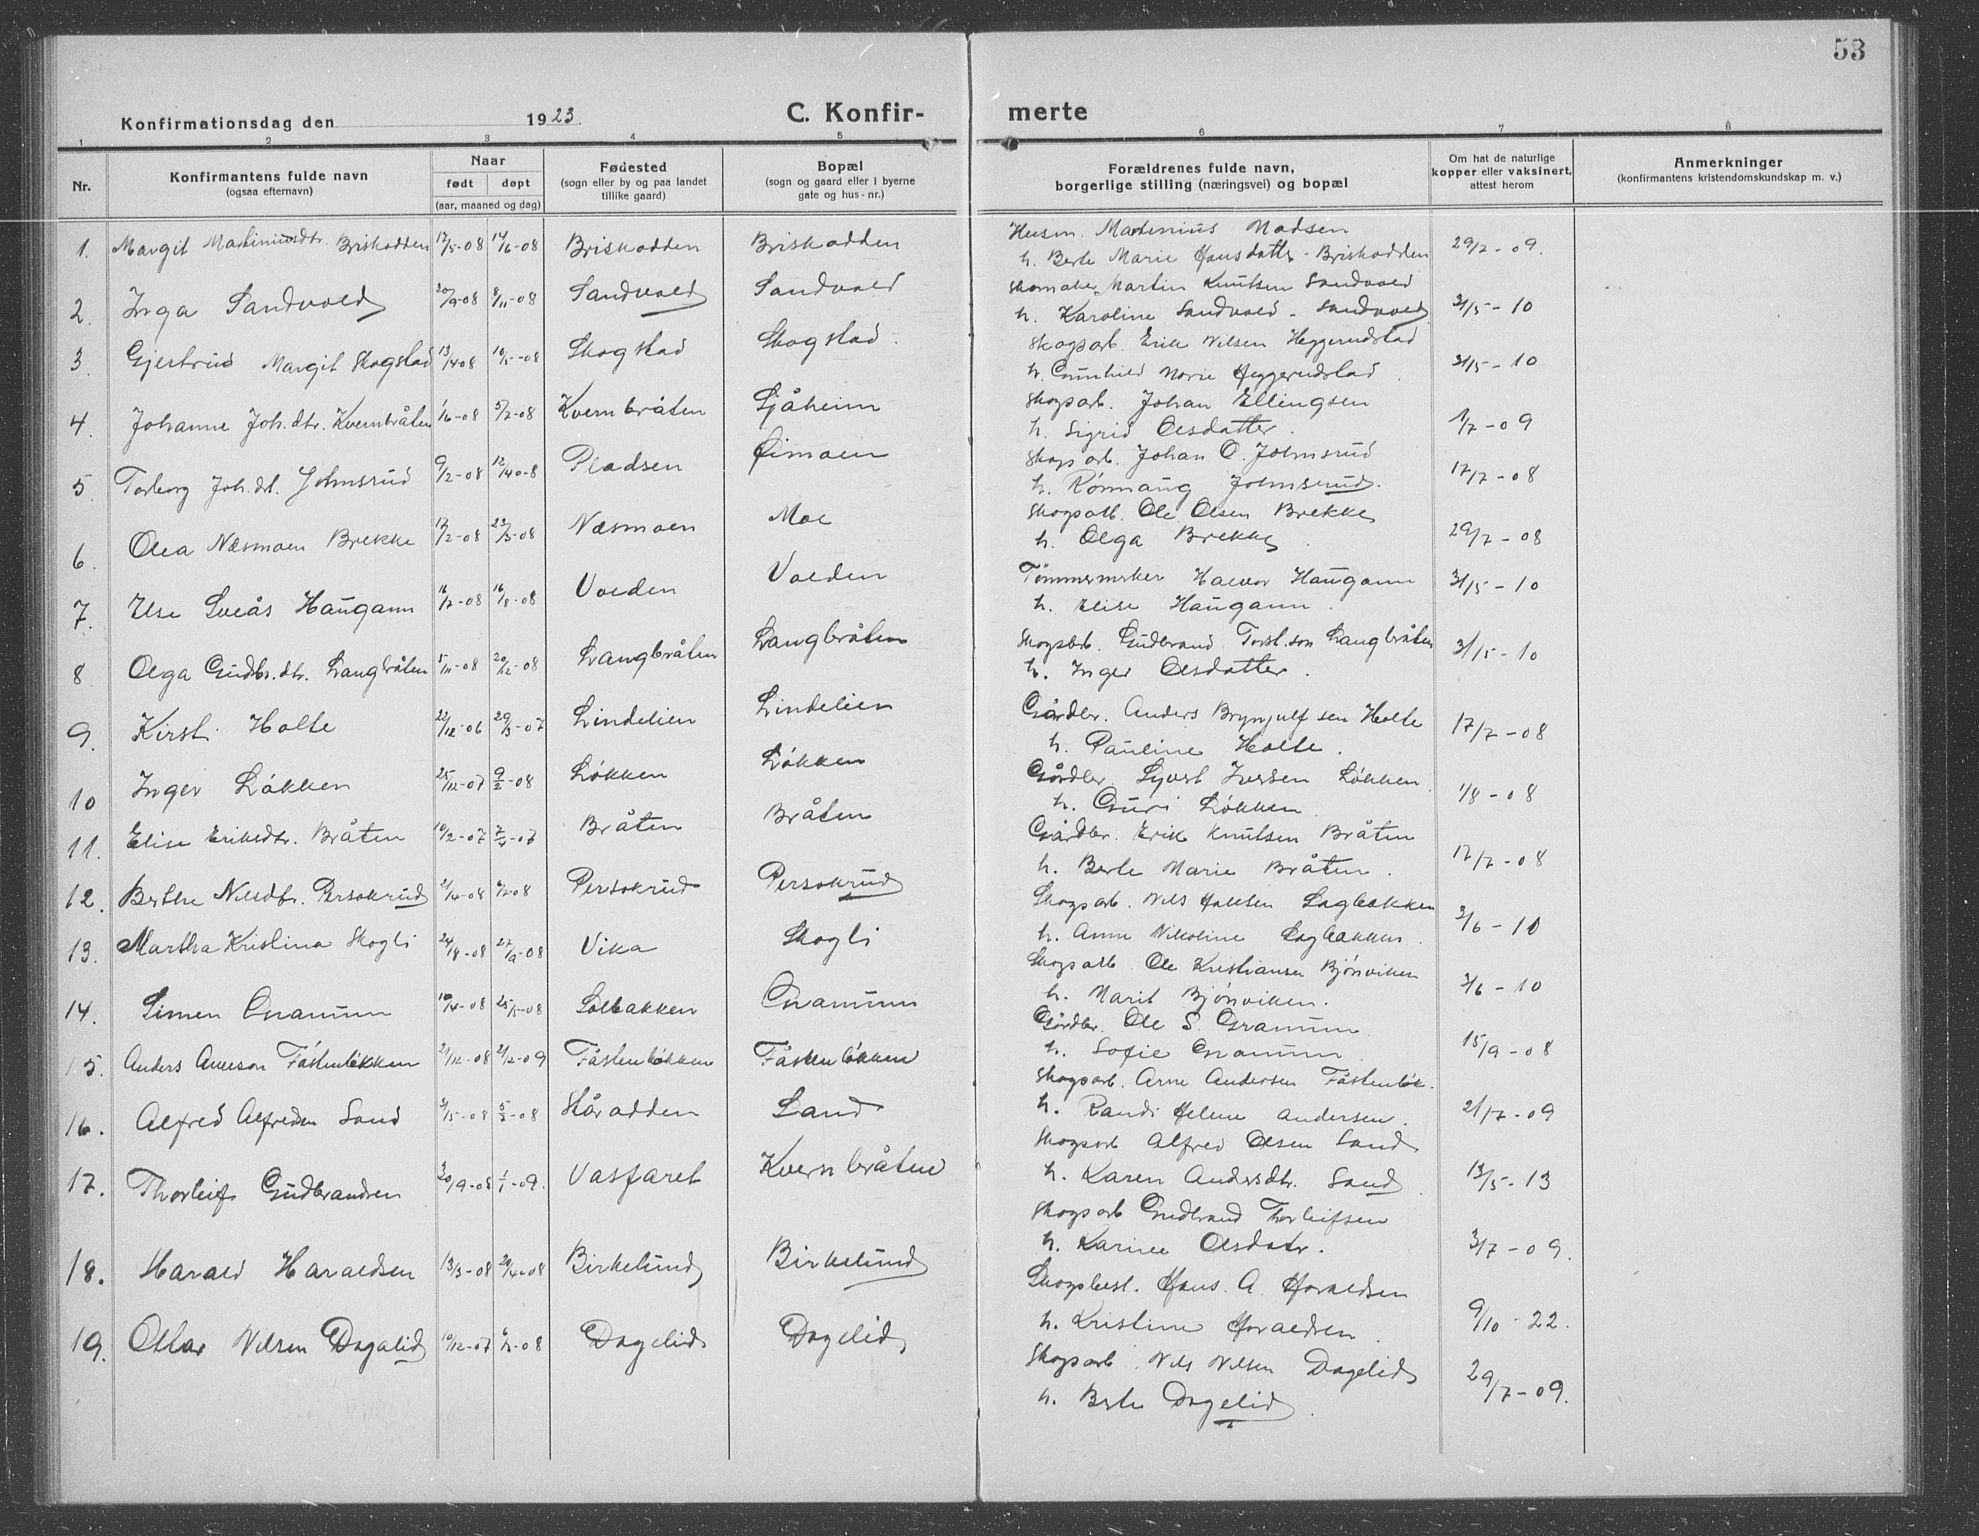 53
Konfirmationsdag den 1923. C. Konfir- merte
1 2 3 4 5 6 7 8
Nr. Konfirmantens fulde navn (ogsaa efternavn) Naar født døpt (aar, maaned og dag) Fødested (sogn eller by og paa landet tillike gaard) Bopæl (sogn og gaard eller i byerne gate og hus-nr.) Forældrenes fulde navn, borgerlige stilling (næringsvei) og bopæl Om hat de naturlige kopper eller vaksinert, attest herom Anmerkninger (konfirmantens kristendomskundskap m. v.)
1. Margit Martiniusdtr. Briskodden 17/5-08 14/6-08 Briskodden Briskodden Husm. Martinius Madsen
h. Berte Marie Hansdatter - Briskodden 29/7-09.
2. Inga Sandvold 20/9-08 8/11-08 Sandvold Sandvold Skomaker Martin Knutsen Sandvold
h. Karoline Sandvold - Sandvold 31/5-10
3. Gjertrud Margit Skogstad 13/4 08 10/5-08 Skogstad Skogstad. Skogsarb. Erik Nilsen Heggerudstad
h. Gunhild Marie Heggerudstad. 31/5-10
4. Johanne Joh.dtr. Kvernbråten 1/6-08 5/7-08 Kvernbråten Sjåheim Skogsarb. Johan Ellingsen
h. Sigrid Olsdatter. 1/7-09
5. Torborg Joh.dt. Johnsrud 9/2-08 12/4 0-8 Pladsen Øimoen Skogsarb. Johan O. Johnsrud
h. Rønnaug Johnsrud. 17/7-08
6. Olea Næsmoen Brekke 17/2-08 22/3-08 Næsmoen Moe Skogsarb. Ole Olsen Brekke
h. Olga Brekke. 29/7-08
7. Else Sveås Haugann 16/7-08 16/8-08 Volden Volden Tømmermerker Halvor Haugann
h. Elise Haugann. 31/5-10
8 Olga Gudbr.dtr. Langbråten 5/11-08 20/12-08 Langbråten Langbråten Skogsarb. Gudbrand Torst.son Langbråten
h. Inger Olsdatter. 31/5-10
9. Kirsti Holte 22/12-06 29/3-07 Lindelien Lindelien Gårdbr. Anders Brynjulfsen Holte
h. Pauline Holte. 17/7-08
10 Inger Løkken 25/12-07 9/2-08 Løkken Løkken Gårdbr. Syvert Iversen Løkken.
h. Guri Løkken 1/8-08
11. Elise Eriksdtr. Bråten 10/2-07 7/4-07 Bråten Bråten Gårdbr. Erik Knutsen Bråten
h. Berte Marie Bråten. 17/7-08
12. Berthe Nilsdtr. Persokrud 2/4-08 Persokrud Persokrud Skogsarb. Nils Hansen Sagbakken
h. Anne Nikoline Sagbakken. 3/6-10
13. Martha Kristina Skogli 24/8-08 27/9-08 Vika Skogli Skogsarb. Ole Kristiansen Bjønviken
h. Marit Bjønviken. 3/6-10
14. Simen Granum 10/4-08 25/5-08 Solbakken Granum Gårdbr. Ole S. Granum
h. Sofie Granum 15/9-08
15. Anders Arneson Fåstenløkken 21/12-08 2/2-09 Fåstenløkken Fåstenløkken Skogsarb. Arne Andersen Fåstenløk.
h. Randi Helene Andersen. 21/7-09
16. Alfred Alfredsen Sand 3/5-08 5/7-08 Håradden Sand Skogsarb Alfred Olsen Sand
h. Karen Andersdtr. Sand. 13/5-13
17. Thorleif Gudbrandsen 30/9-08 1/1-09. Vasfaret Kvernbråten Skogsarb Gudbrand Thorleifsen
h. Karine Olsdatr. 3/7-09.
18. Harald Haraldsen 13/3-08 20/4-08 Birkelund Birkelund Skogsbest. Hans A. Haraldsen
h. Kristine Haraldsen. 9/10-22.
19. Ottar Nilsen Dagalid 10/12-07 6/3-08 Dagelid Dagelid Skogsarb. Nils Nilsen Dagelid
h. Berte Dagelid. 29/7-09.